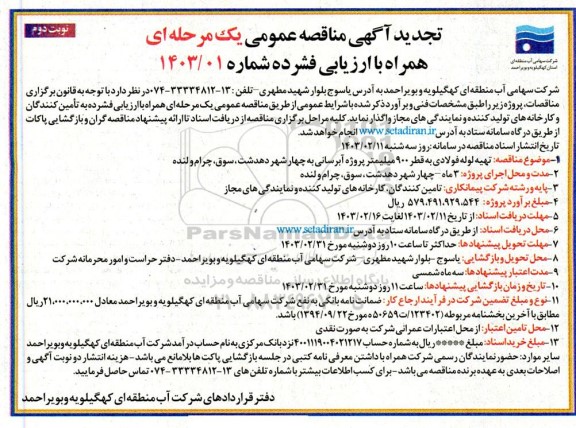 نوبت دوم
تجدید آگهی مناقصه عمومی یک مرحله ای
همراه با ارزیابی فشرده شماره ۱۴۰۳/۰۱
شرکت سهامی آب منطقه ای
استان کهگیلویه و بویراحمد
شرکت سهامی آب منطقه ای کهگیلویه و بویراحمد به آدرس یاسوج بلوار شهید مطهری – تلفن : ۱۳-۳۳۳۳۴۸۱۲-۰۷۴ در نظر دارد با توجه به قانون برگزاری
مناقصات، پروژه زیر را طبق مشخصات فنی و برآورد ذکر شده با شرایط عمومی از طریق مناقصه عمومی یک مرحله ای همراه با ارزیابی فشرده به تأمین کنندگان
و کارخانه های تولید کننده و نمایندگی های مجاز واگذار نماید. کلیه مراحل برگزاری مناقصه از دریافت اسناد تا ارائه پیشنهاد مناقصه گران و بازگشایی پاکات
از طریق درگاه سامانه ستاد به آدرس www.setadiran.ir انجام خواهد شد.
تاریخ انتشار اسناد مناقصه در سامانه: روز سه شنبه ۱۴۰۳/۰۲/۱۱
۱-موضوع مناقصه: تهیه لوله فولادی به قطر ۹۰۰ میلیمتر پروژه آبرسانی به چهار شهر دهدشت، سوق، چرام و لنده
۲-مدت و محل اجرای پروژه: ۳ ماه – چهار شهر دهدشت، سوق، چرام و لنده
۳-پایه و رشته شرکت پیمانکاری: تامین کنندگان، کارخانه های تولید کننده و نمایندگی های مجاز
۴-مبلغ برآورد پروژه: ۵۷۹.۴۹۱.۹۲۹.۵۴۴ ریال
۵-مهلت دریافت اسناد: از تاریخ ۱۴۰۳/۰۲/۱۱ لغایت ۱۴۰۳/۰۲/۱۶
۶-محل دریافت اسناد: از طریق درگاه سامانه ستاد به آدرس www.setadiran.ir
۷-مهلت تحویل پیشنهادها: حداکثر تا ساعت ۱۰ روز دوشنبه مورخ ۱۴۰۳/۰۲/۳۱
۸-محل تحویل و بازگشایی: یاسوج – بلوار شهید مطهری – شرکت سهامی آب منطقه ای کهگیلویه و بویراحمد – دفتر حراست و امور محرمانه شرکت
۹-مدت اعتبار پیشنهادها: سه ماه شمسی
۱۰-تاریخ و زمان بازگشایی پیشنهادها: ساعت ۱۱ روز دوشنبه مورخ ۱۴۰۳/۰۲/۳۱
۱۱-نوع و مبلغ تضمین شرکت در فرآیند ارجاع کار: ضمانتنامه بانکی به نفع شرکت سهامی آب منطقه ای کهگیلویه و بویراحمد معادل ۲۱.۰۰۰.۰۰۰.۰۰۰ ریال
مطابق با آخرین بخشنامه مربوطه (۱۲۳۴۰۲/ت۵۰۶۵۹ه مورخ ۱۳۹۴/۰۹/۲۲) می باشد.
۱۲-محل تامین اعتبار: از محل اعتبارات عمرانی شرکت به صورت نقدی
۱۳-مبلغ خرید اسناد: مبلغ ***** ریال به شماره حساب ۴۰۰۱۱۱۹۰۰۴۰۲۱۲۱۷ نزد بانک مرکزی به نام حساب درآمد شرکت آب منطقه ای کهگیلویه و بویراحمد
سایر موارد: حضور نمایندگان رسمی شرکت همراه با داشتن معرفی نامه کتبی در جلسه بازگشایی پاکت ها بلامانع می باشد – هزینه انتشار دو نوبت آگهی و
اصلاحات بعدی به عهده برنده مناقصه می باشد – برای کسب اطلاعات بیشتر با شماره تلفن های ۱۳-۳۳۳۳۴۸۱۲-۰۷۴ تماس حاصل فرمایید.
دفتر قراردادهای شرکت آب منطقه ای کهگیلویه و بویراحمد